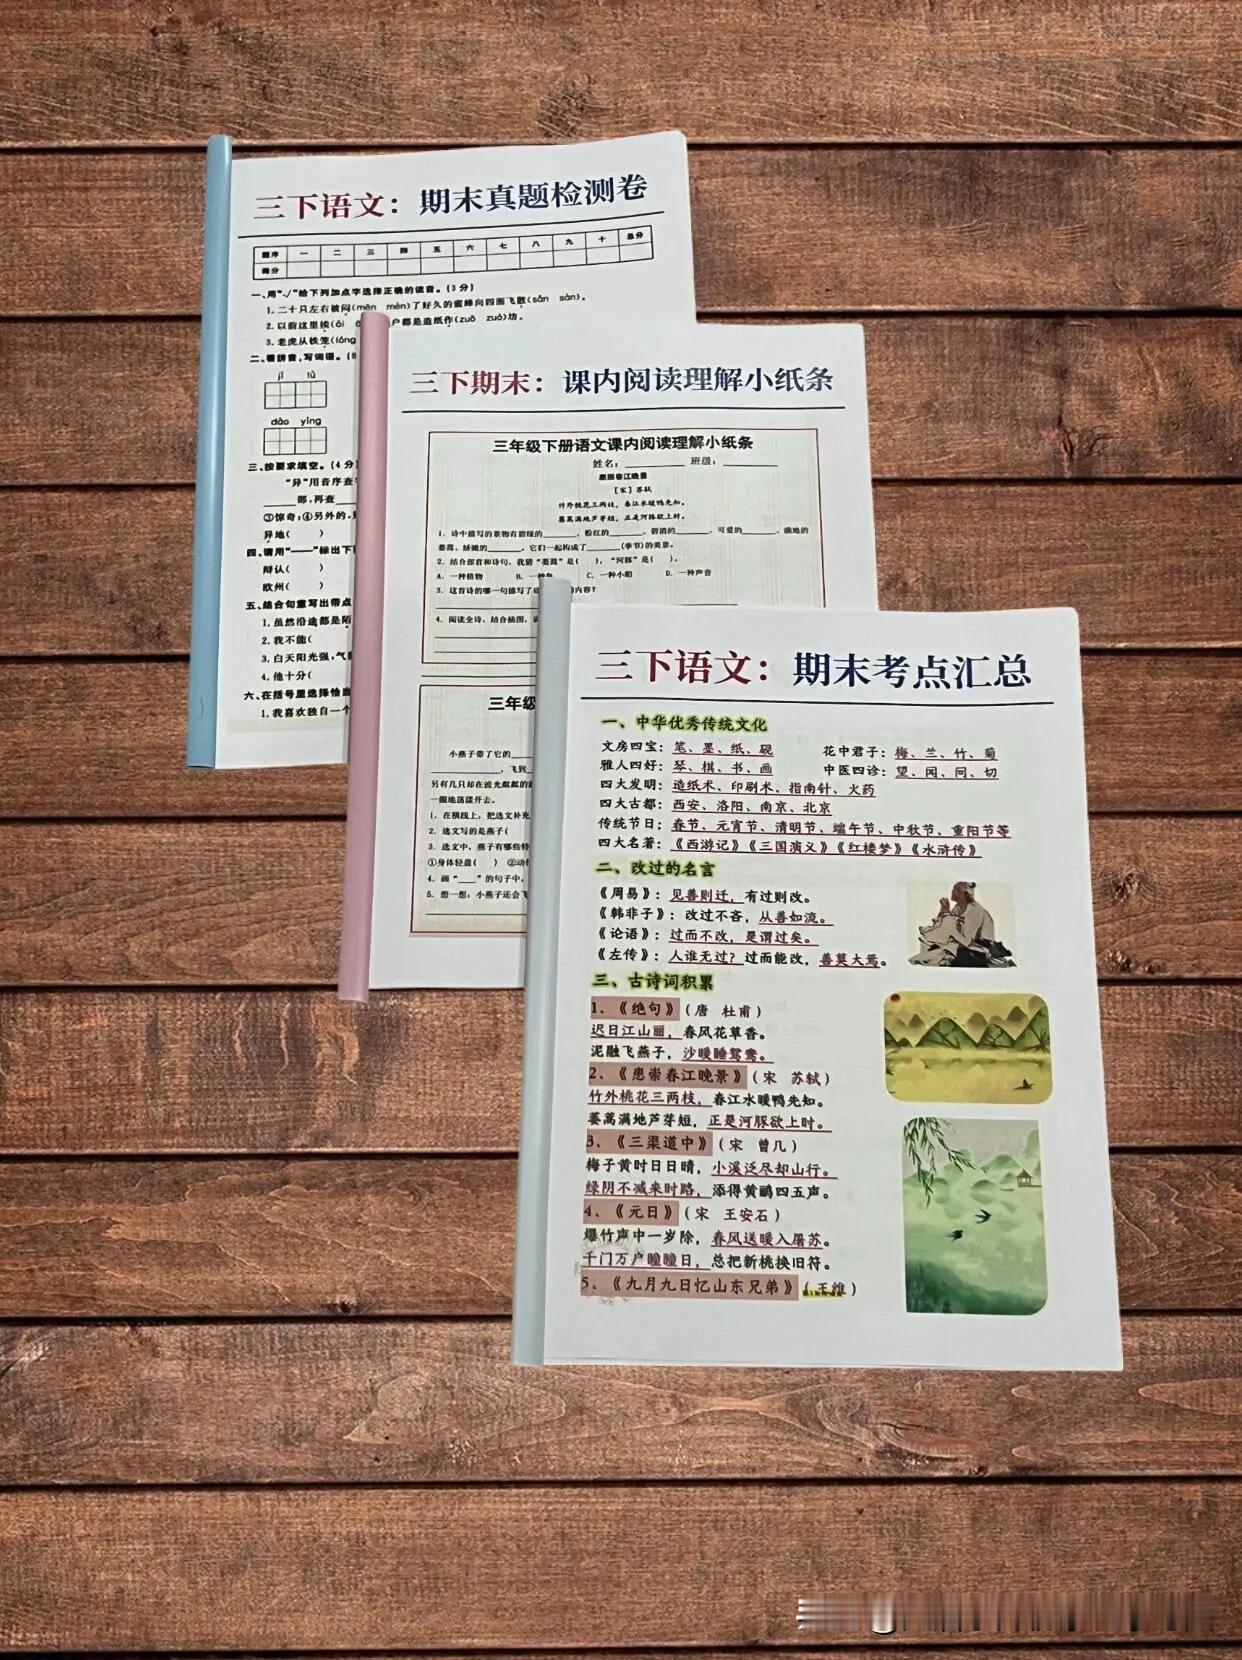 三下语文：期末真题检测卷
题序 一 二 三 四 五 六 七 八 九 十 总分
得分
一、用“√”给下列加点字选择正确的读音。(3分)
1.二十只左右被闷(mēn mèn)了好久的蜜蜂向四面飞散(sǎn sàn)。
2.以前这里挨(āi 户都是造纸作(zuō zuò)坊。
3.老虎从铁笼(lóng
二、看拼音,写词语。(8
jǐ lǜ
dào yìng
三、按要求填空。(4分
“异”用音序查
部,再查
③惊奇;④另外的,
异地( )
四、请用“——”标出下
辩认( )
欧州( )
五、结合句意写出带点
1.虽然沿途都是陌
2.我不能(
3.白天阳光强,气
4.他十分(
六、在括号里选择恰当
1.我喜欢独自一个
三下期末：课内阅读理解小纸条
三年级下册语文课内阅读理解小纸条
姓名： 班级：
惠崇春江晚景
［宋］苏轼
竹外桃花三两枝，春江水暖鸭先知。
蒌蒿满地芦芽短，正是河豚欲上时。
1．诗中描写的景物有碧绿的 、粉红的 、碧清的 、可爱的 、满地的
蒌蒿、娇嫩的 ，它们一起构成了 (季节)的美景。
2．结合部首和诗句，我猜“蒌蒿”是( )，“河豚”是( )。
A．一种植物 B．一种鱼 C．一种小船 D．一种声音
3．这首诗的哪一句描写了 的内容？
4．阅读全诗，结合插图，
三年级
小燕子带了它的
，飞到
另有几只却在波光粼粼的
一圈地荡漾开去。
1．在横线上，把选文补充
2．选文写的是燕子(
3．选文中，燕子有哪些特
①身体轻盈( ) ②动作
4．画“ ”的句子中，
5．想一想：小燕子还会飞
三下语文：期末考点汇总
一、中华优秀传统文化
文房四宝：笔、墨、纸、砚 花中君子：梅、兰、竹、菊
雅人四好：琴、棋、书、画 中医四诊：望、闻、问、切
四大发明：造纸术、印刷术、指南针、火药
四大古都：西安、洛阳、南京、北京
传统节日：春节、元宵节、清明节、端午节、中秋节、重阳节等
四大名著：《西游记》《三国演义》《红楼梦》《水浒传》
二、改过的名言
《周易》：见善则迁，有过则改。
《韩非子》：改过不吝，从善如流。
《论语》：过而不改，是谓过矣。
《左传》：人谁无过？过而能改，善莫大焉。
三、古诗词积累
1、《绝句》（唐 杜甫）
迟日江山丽，春风花草香。
泥融飞燕子，沙暖睡鸳鸯。
2、《惠崇春江晚景》（宋 苏轼）
竹外桃花三两枝，春江水暖鸭先知。
蒌蒿满地芦芽短，正是河豚欲上时。
3、《三衢道中》（宋 曾几）
梅子黄时日日晴，小溪泛尽却山行。
绿阴不减来时路，添得黄鹂四五声。
4、《元日》（宋 王安石）
爆竹声中一岁除，春风送暖入屠苏。
千门万户曈曈日，总把新桃换旧符。
5、《九月九日忆山东兄弟》（王维）